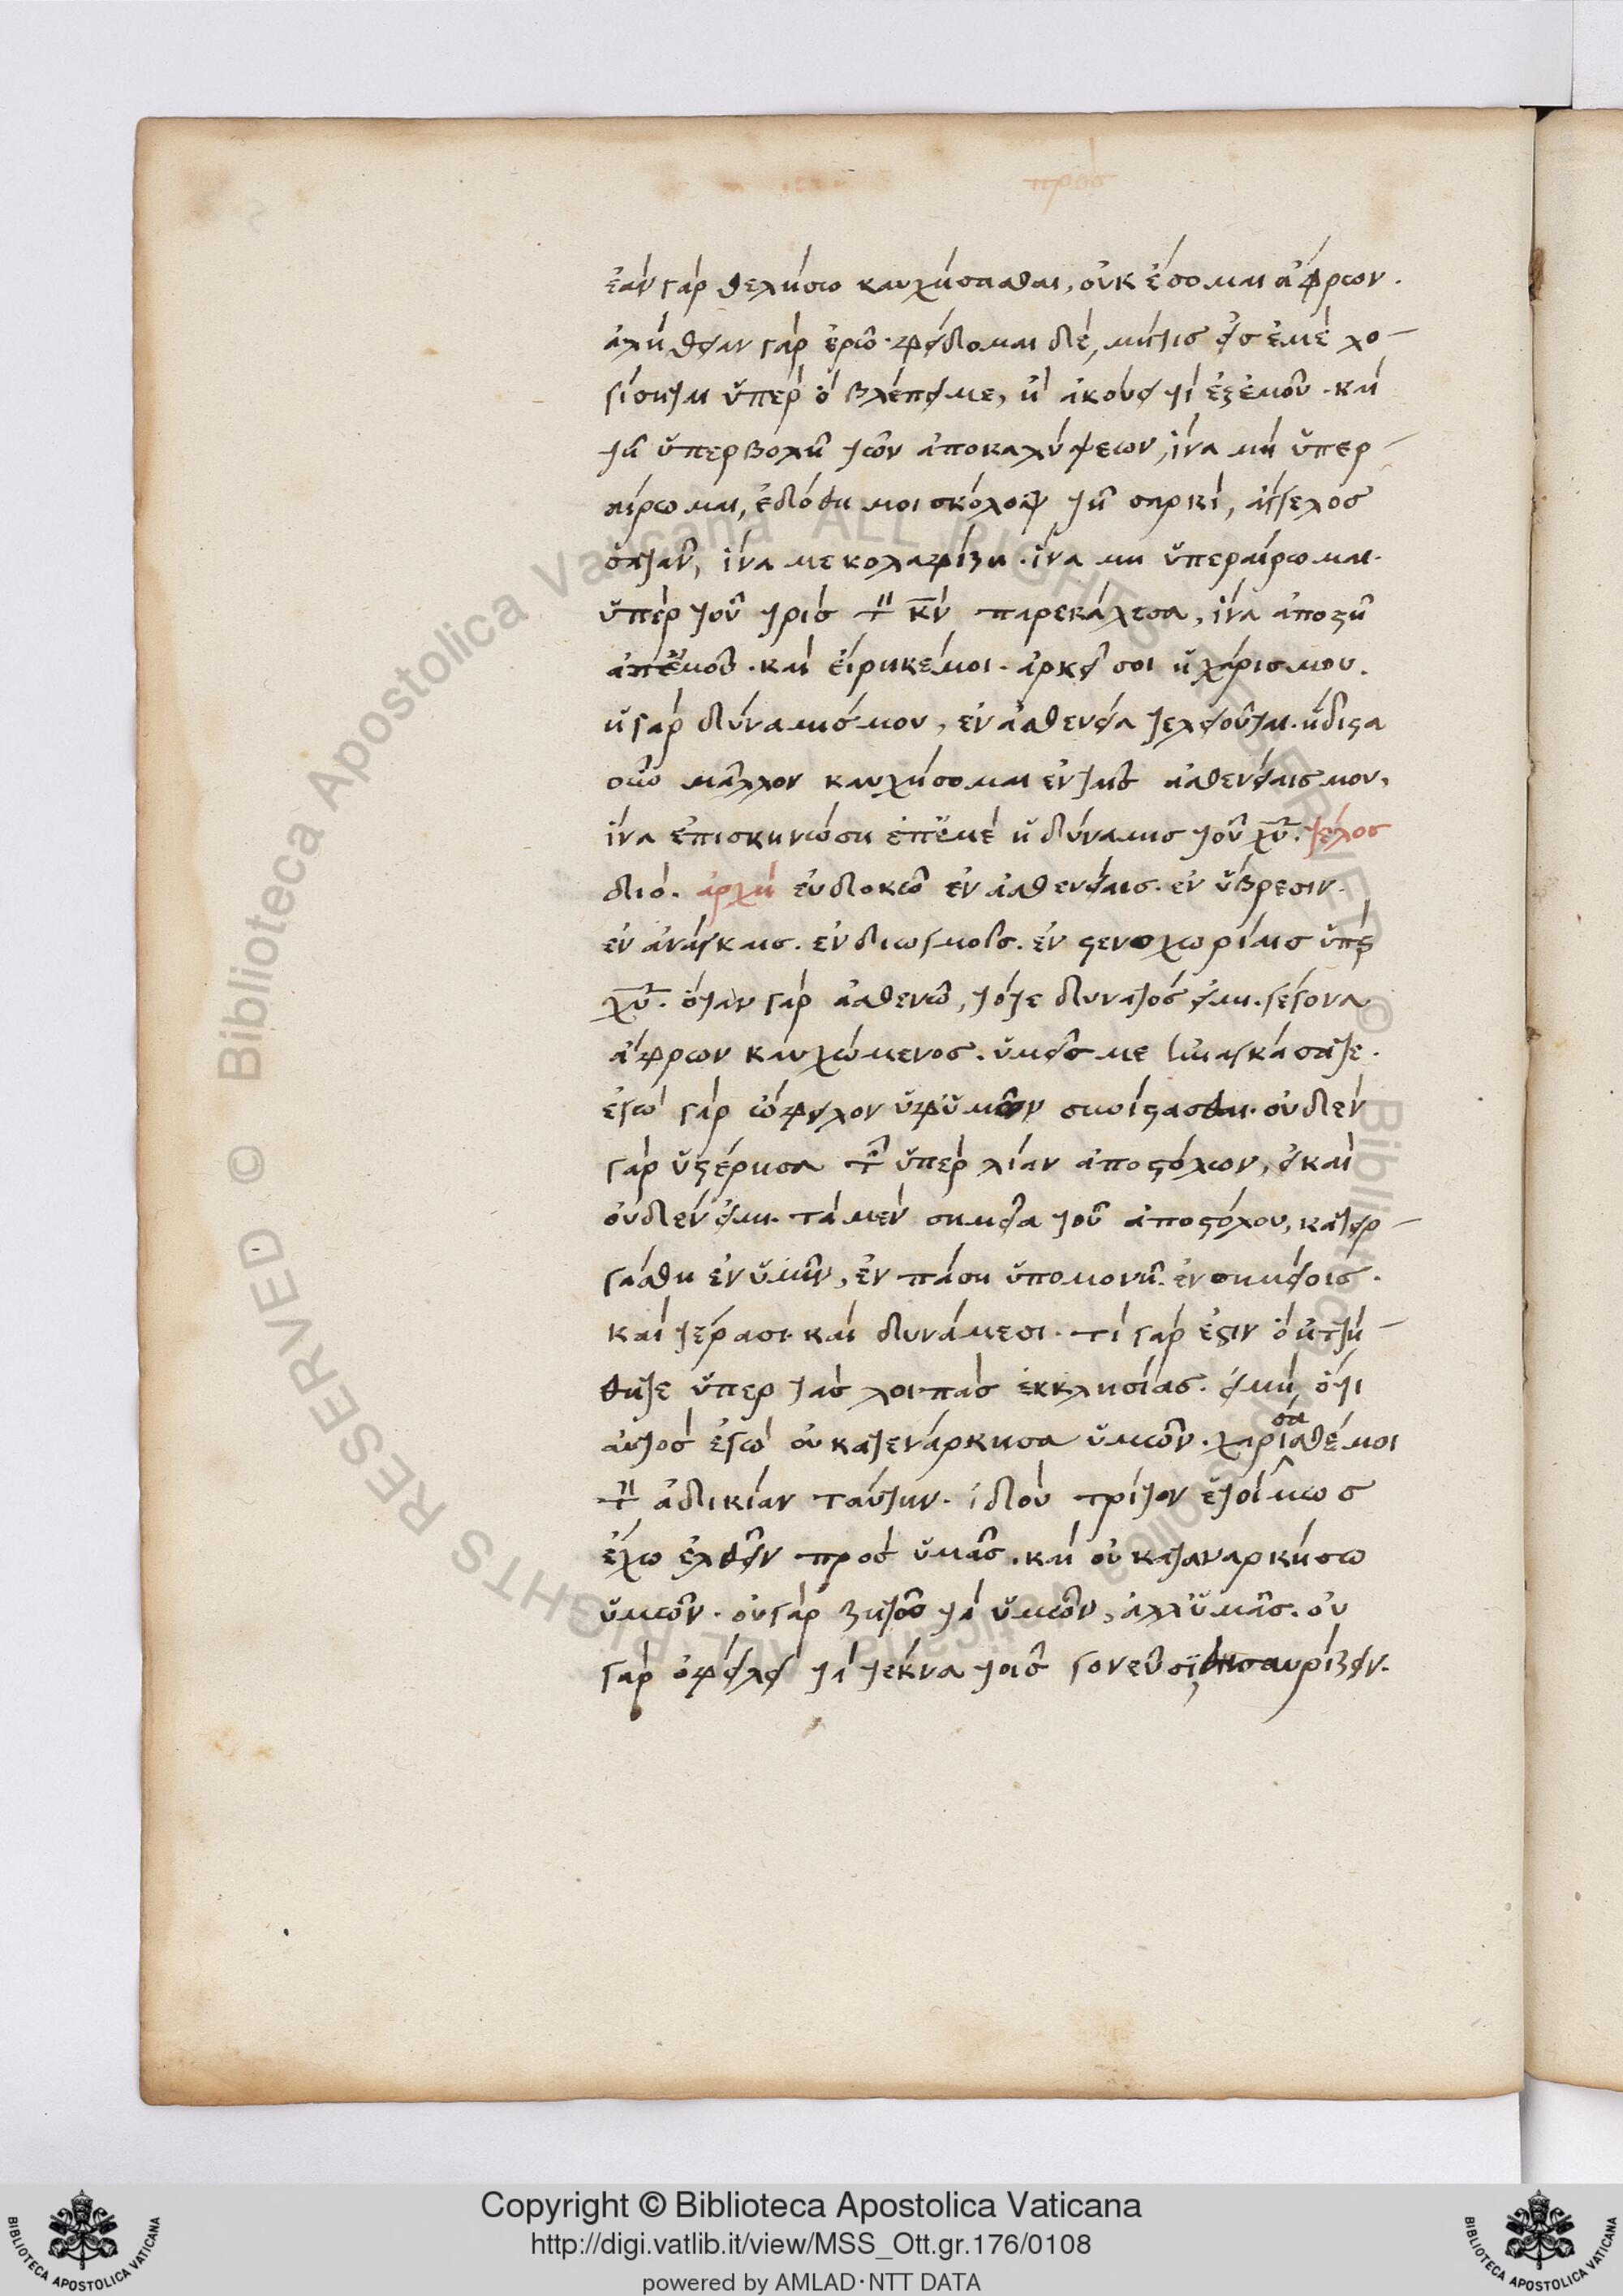 πρὸς
ἐὰν γὰρ θελήσω καυχήσασθαι, οὐκ ἔσομαι ἄφρων.
ἀλήθειαν γὰρ ἐρῶ. φείδομαι δὲ, μήτις εἰς ἐμὲ λο-
γίσηται ὑπὲρ ὃ βλέπει με, ἢ ἀκούει τὶ ἐξ ἐμοῦ. καὶ
τῇ ὑπερβολῇ τῶν ἀποκαλύψεων, ἵνα μὴ ὑπερ-
αίρωμαι, ἐδόθη μοι σκόλοψ τῇ σαρκὶ, ἄγγελος
σατᾶν, ἵνα με κολαφίζη. ἵνα μὴ ὑπεραίρωμαι.
ὑπὲρ τοῦ τρὶς τὸν κν παρεκάλεσα, ἵνα ἀποστῇ
ἀπ' ἐμοῦ. καὶ εἴρηκέ μοι. ἀρκεῖ σοι ἡ χάρις μου.
ἡ γὰρ δύναμίς μου, ἐν ἀσθενεία τελειοῦται. ἥδιστα
οὖν μᾶλλον καυχήσομαι ἐν ταῖς ἀσθενείαις μου,
ἵνα ἐπισκηνώση ἐπ' ἐμὲ ἡ δύναμις τοῦ χυ. τέλος
διὸ. ἀρχὴ εὐδοκῶ ἐν ἀσθενείαις. ἐν ὕβρεσιν.
ἐν ἀνάγκαις. ἐν διωγμοῖς. ἐν στενοχωρίαις ὑπὲρ
χυ. ὅταν γὰρ ἀσθενῶ, τότε δυνατός εἰμι. γέγονα
ἄφρων καυχώμενος. ὑμεῖς με ἠναγκάσατε.
ἐγὼ γὰρ ὤφειλον ὑφ' ὑμῶν συνίστασθαι. οὐδὲν
γὰρ ὑστέρησα τῶν ὑπὲρ λίαν ἀποστόλων, εἰ καὶ
οὐδέν εἰμι. τὰ μὲν σημεῖα τοῦ ἀποστόλου, κατειρ-
γάσθη ἐν ὑμῖν, ἐν πάση ὑπομονῇ. ἐν σημείοις.
καὶ τέρασι. καὶ δυνάμεσι. τί γὰρ ἐστιν ὃ ἡττή-
θητε ὑπὲρ τὰς λοιπὰς ἐκκλησίας. εἰ μὴ, ὅτι
αὐτὸς ἐγὼ οὐ κατενάρκησα ὑμῶν. χαρίσασθέ μοι
τὴν ἀδικίαν ταύτην. ἰδοὺ τρίτον ἑτοίμως
ἔχω ἐλθεῖν πρὸς ὑμᾶς. καὶ οὐ καταναρκήσω
ὑμῶν. οὐ γὰρ ζητῶ τὰ ὑμῶν, ἀλλ' ὑμᾶς. οὐ
γὰρ ὀφείλει τὰ τέκνα τοῖς γονεῦσι, θησαυρίζειν.
© Biblioteca Apostolica Vaticana ALL RIGHTS RESERVED
© Biblioteca Apostolica Vaticana ALL RIGHTS RESERVED
Copyright © Biblioteca Apostolica Vaticana
http://digi.vatlib.it/view/MSS_Ott.gr.176/0108
powered by AMLAD·NTT DATA
BIBLIOTECA APOSTOLICA VATICANA
BIBLIOTECA APOSTOLICA VATICANA